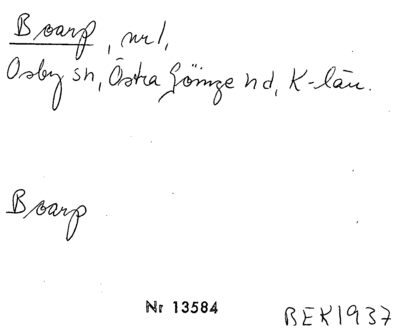 Boarp, nr 1,
Osby sn, Östra Göinge hd, K-län.
Boarp
Nr 13584
BEK1937